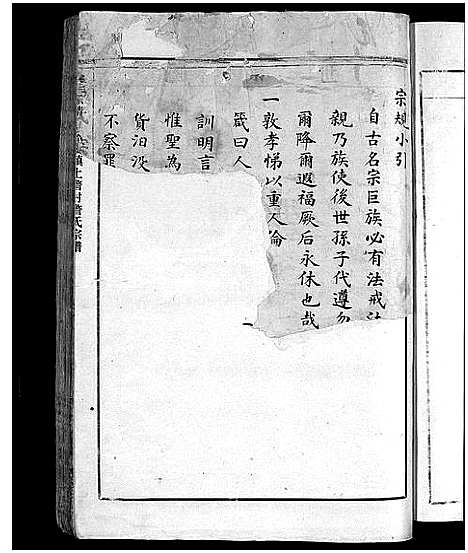 宗規小引
自古名宗巨族必有法戒法
親乃族使後世孫子代遵勿
爾降爾遐福厥后永休也哉
一敦孝悌以重人倫
箴曰人
訓明言
惟聖為
貨泊沒
不察罪
上 村 氏宗譜